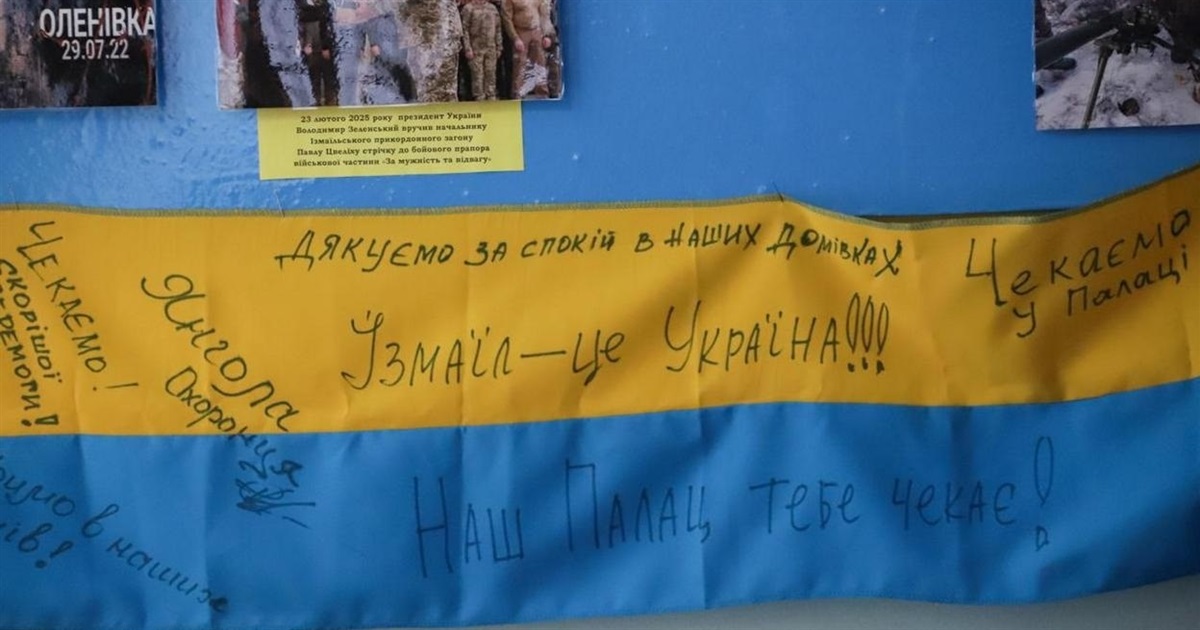 ОЛЕНІВКА
29.07.22
23 лютого 2025 року президент України
Володимир Зеленський вручив начальнику
Ізмаїльського прикордонного загону
Павлу Цвеліху стрічку до бойового прапора
військової частини «За мужність та відвагу»
ЧЕКАЄМО!
СКОРІШОЇ
ПЕРЕМОГИ!
Янгола
Охоронця
ДЯКУЄМО ЗА СПОКІЙ В НАШИХ ДОМІВКАХ
Ізмаїл — це Україна!!!
Чекаємо
у Палаці
Наш Палац тебе чекає!
в наших